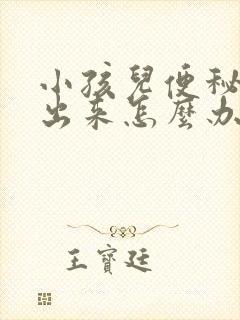 小孩兒便秘
出來怎麼办
王寶廷